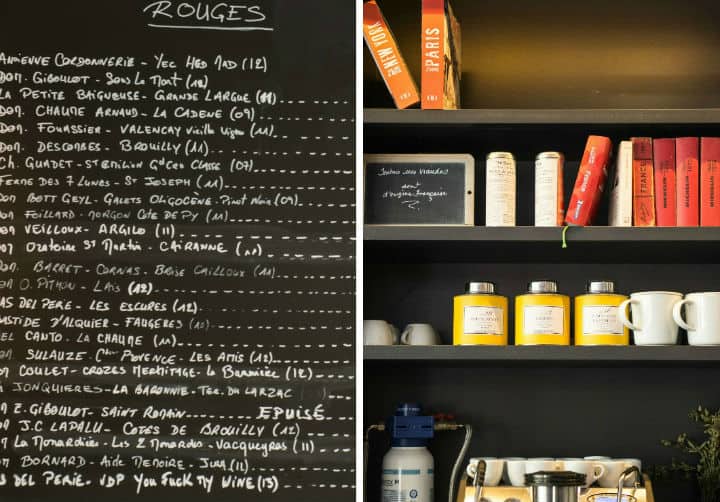 ROUGES
AMIENNE CORDONNERIE - YEC'HED MAD (12)
DOM. GIBOULOT - SOUS LE MONT (12)
LA PETITE BAIGNEUSE - GRANDE LARGUE (11)
DOM. CHAUME ARNAUD - LA CADENE (09)
DOM. FOUASSIER - VALENCAY Vieille Vignes (11)
DOM. DESCOMBES - BROUILLY (11)
CH. GUADET - ST EMILION Gd Cru Classé (07)
FERME DES 7 LUNES - ST JOSEPH (11)
BOTT GEYL - GALETS OLIGOCENE - Pinot Noir (09)
FOILLARD - MORGON COTE DE PY (11)
VEILLOUX - ARGILO (11)
ORATOIRE ST MARTIN - CAIRANNE (11)
DOM. BARRET - CORNAS - BRISE CAILLOUX (11)
O. PITHON - LAÏS (12)
MAS DEL PERIE - LES ESCURES (12)
BASTIDE D'ALQUIER - FAUGERES
EL CANTO - LA CHAUME (11)
SULAUZE - PROVENCE - LES AMIS (12)
COULET - CROZES HERMITAGE - LE BUISSIERE (12)
JONQUIERES - LA BARONNIE - TER. DU LARZAC
E. GIBOULOT - SAINT ROMAIN EPUISÉ
J.C LAPALU - COTES DE BROUILLY (12)
LA MONARDIÈRE - LES 2 MONARDES - VACQUEYRAS (11)
BORNARD - AIDE MEMOIRE - JURA (11)
MAS DEL PERIE - VDP YOU FUCK MY WINE (13)
NEW YORK
PARIS
Toutes nos viandes
sont
d'origine française
France
FRANCE
MICHELIN
MICHELIN